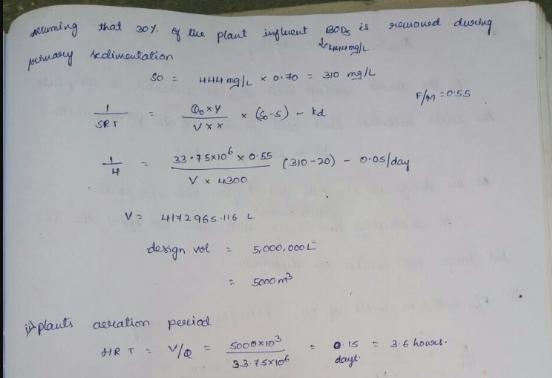 Assuming that 30% of the plant influent BOD5 is removed during
↳ 444mg/L
primary sedimentation
So = 444 mg/L × 0.70 = 310 mg/L
F/M = 0.55
1/SRT = Q0 × Y / V × X × (So-S) - Kd
1/4 = 33.75×10^6 × 0.55 / V × 4300 (310-20) - 0.05/day
V = 4172965.116 L
design vol = 5,000,000L
= 5000 m³
ii) plants aeration period
HRT = V/Q = 5000×10³ / 33.75×10^6 = 0.15 days = 3.6 hours.